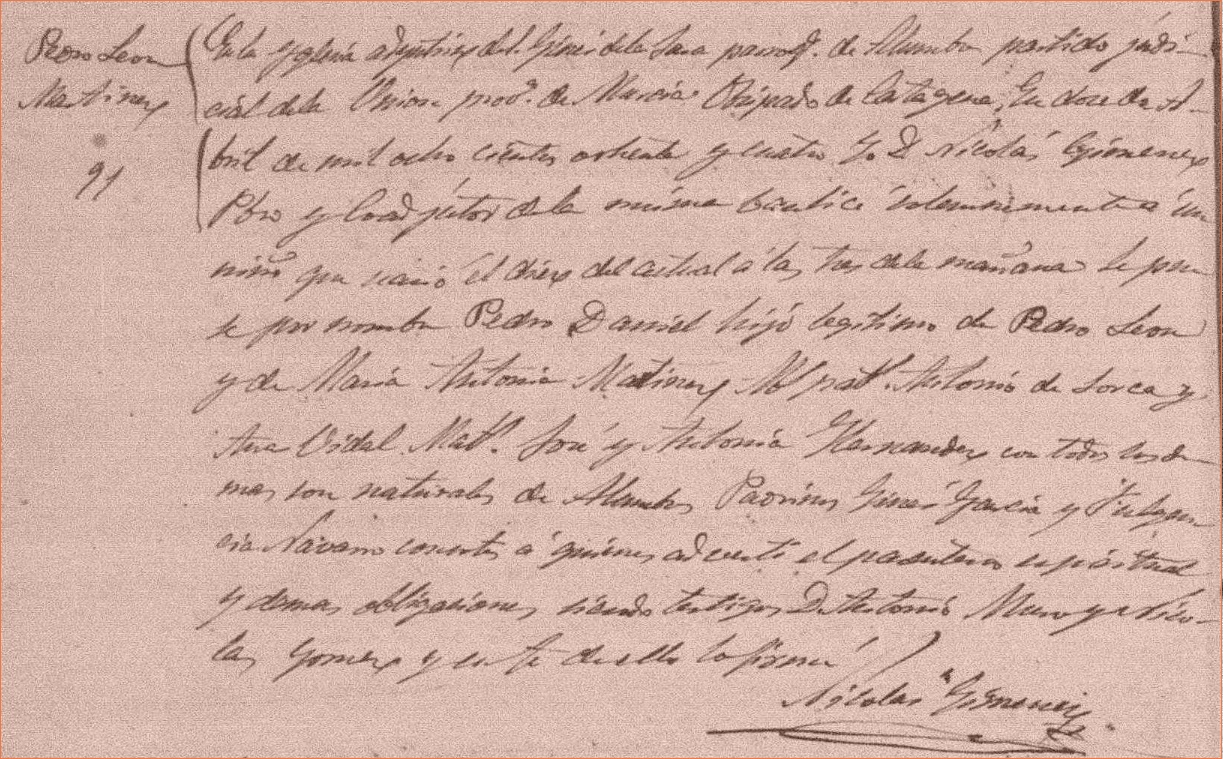 Pedro Leon
Martinez
91
En la Yglesia adjutriz de S. Ginés de la Jara parroqª. de Alumbres partido judi-
cial de la Union provª. de Murcia Obispado de Cartagena, En doce de A-
bril de mil ocho cientos ochenta y cuatro Yo D Nicolás Gimenez
Pbro y Coadjutor de la misma bautice solemnemente a un
niño que nació el diez del actual á las tres de la mañana Le pu-
se por nombre Pedro Daniel hijo legitimo de Pedro Leon
y de Maria Antonia Martinez Ab patˢ. Antonio de Lorca y
Ana Vidal Matˢ. José y Antonia Hernandez con todos los de
mas son naturales de Alumbres Padrinos Ginés Garcia y Fulgen
cia Navarro consortes á quienes adverti el parentesco espiritual
y demas obligaciones siendo testigos D. Antonio Muro y Nico-
las Gomez y en fe de ello lo firmé
Nicolas Gimenez